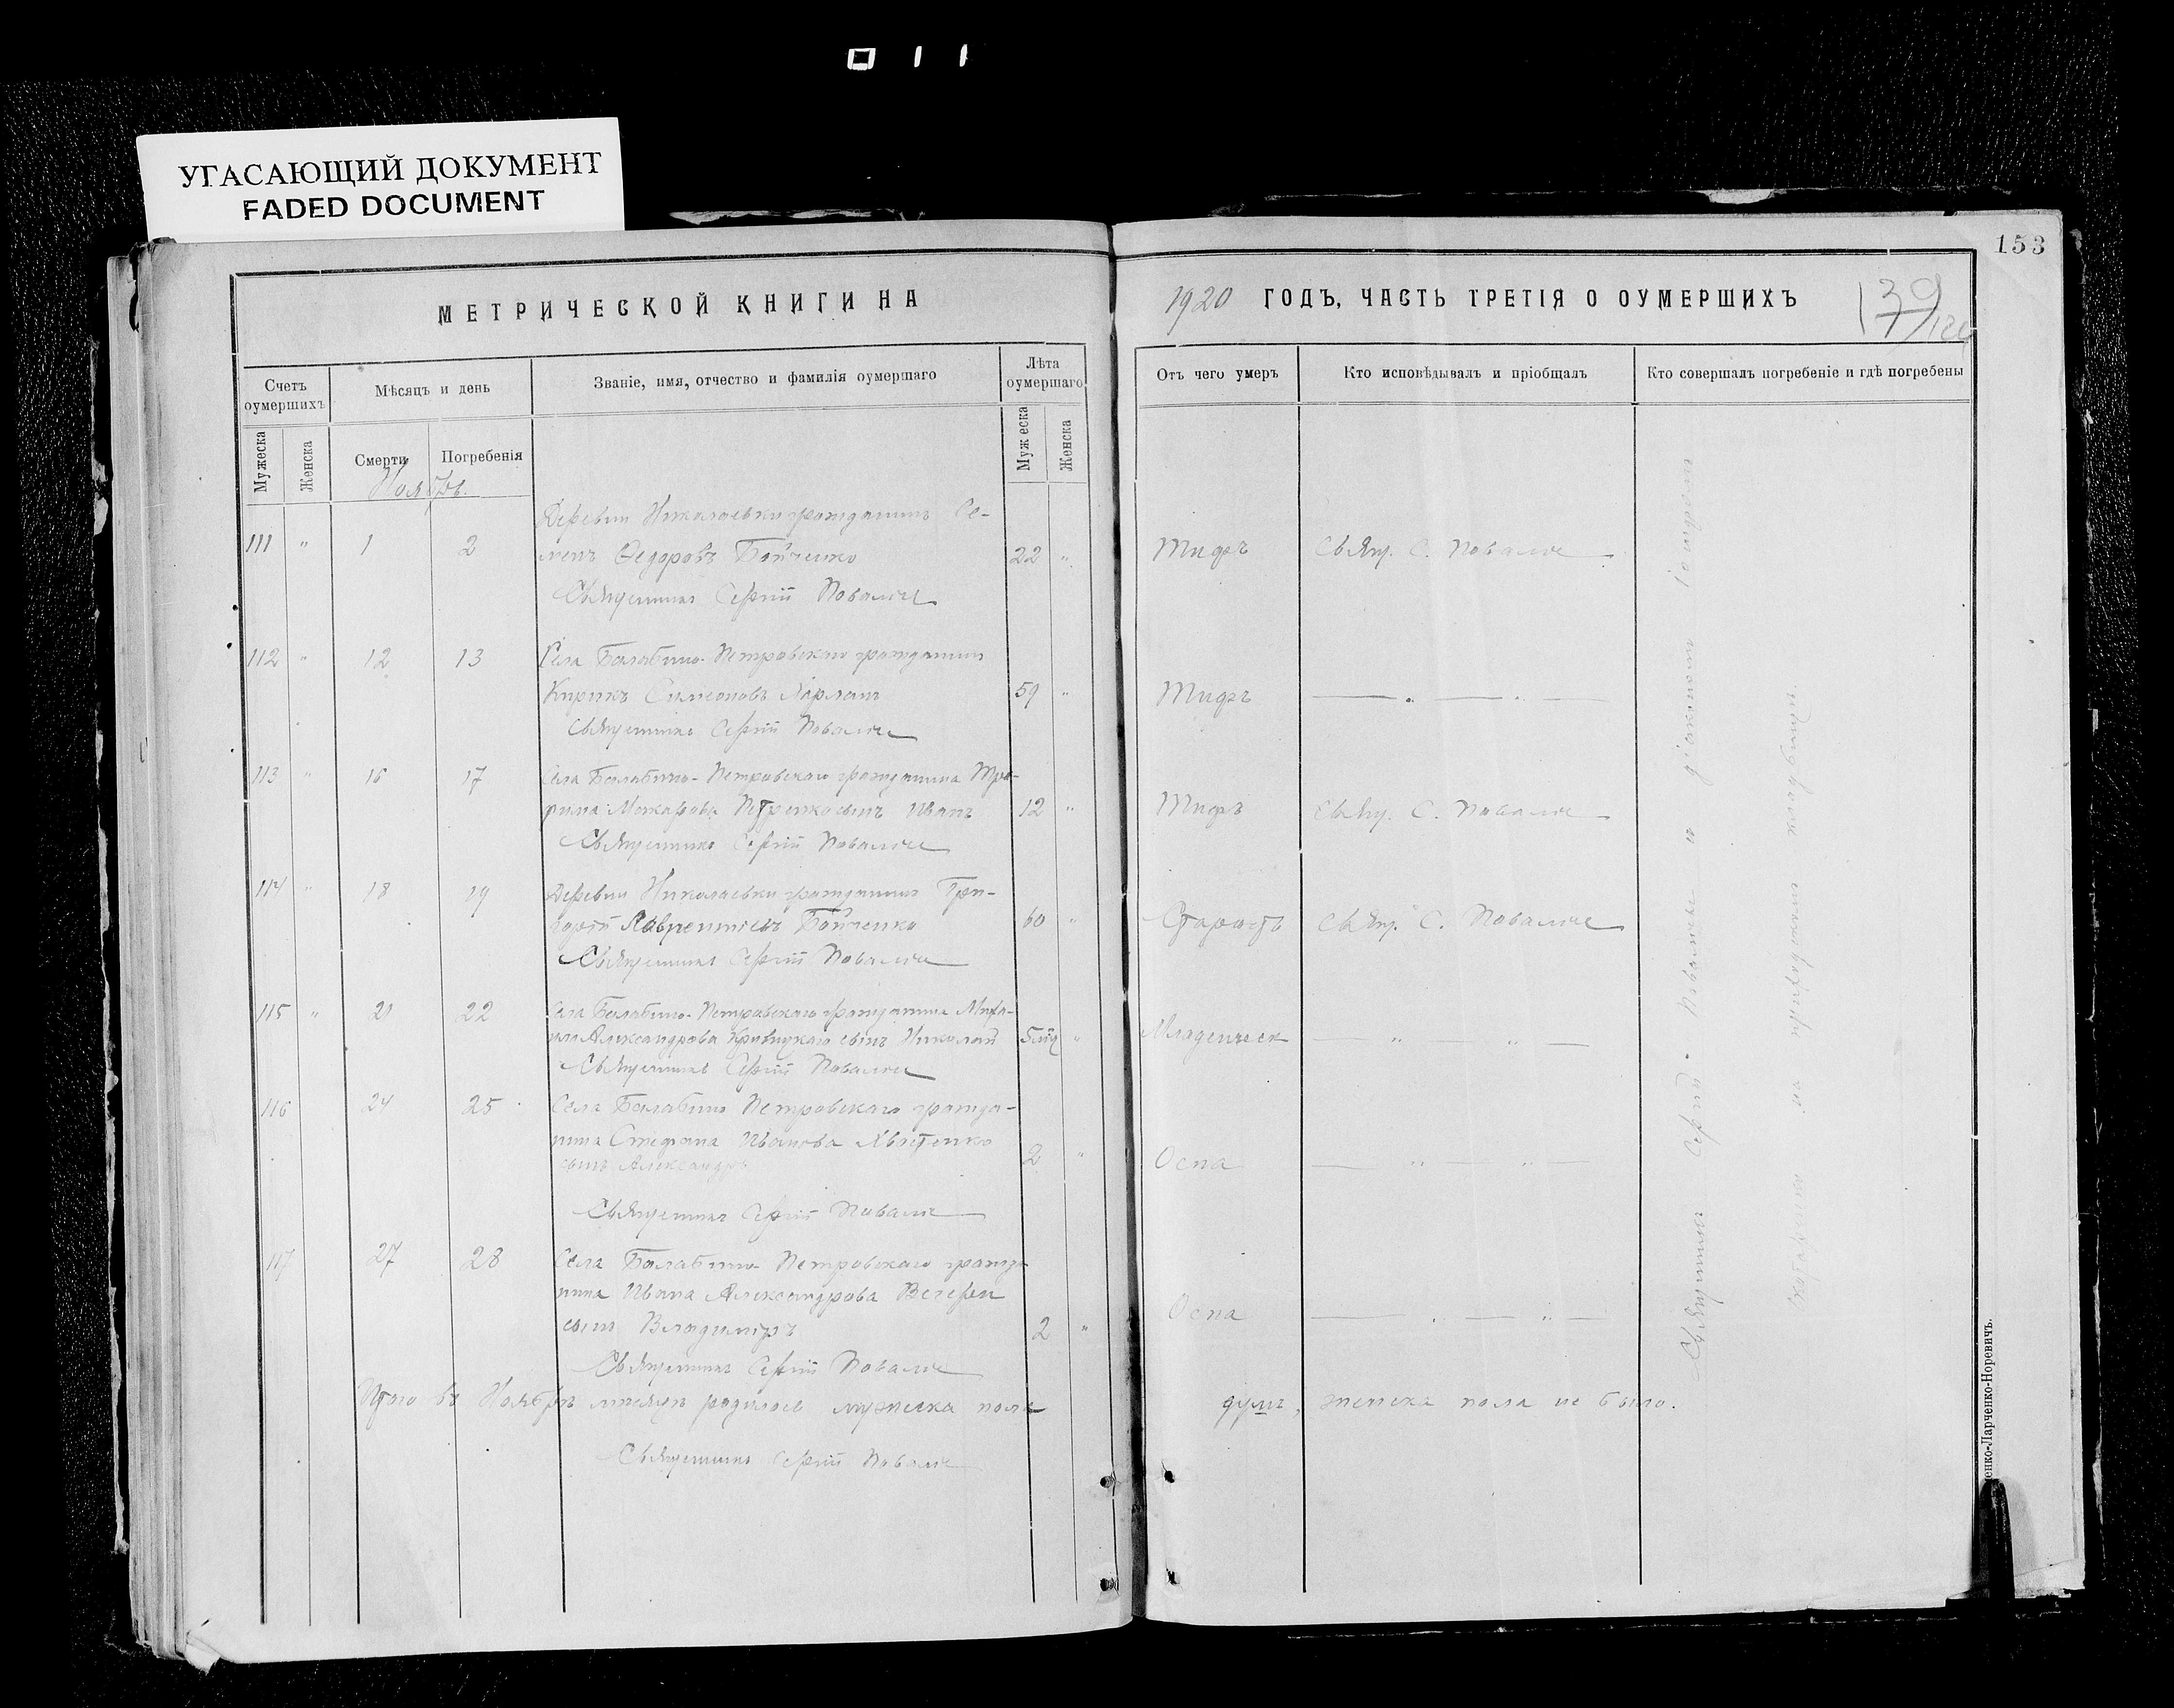 011
УГАСАЮЩИЙ ДОКУМЕНТ
FADED DOCUMENT
153
МЕТРИЧЕСКОЙ КНИГИ НА
1920 ГОДЪ, ЧАСТЬ ТРЕТІЯ О ОУМЕРШИХЪ
139
Счетъ оумершихъ
Мѣсяцъ и день
Званіе, имя, отчество и фамилія оумершаго
Лѣта оумершаго
Отъ чего умеръ
Кто исповѣдывалъ и пріобщалъ
Кто совершалъ погребеніе и гдѣ погребены
Мужеска
Женска
Смерти
Погребенія
Муж еска
Женска
Ноябрь.
Деревни Николаевки гражданинъ Се-
111 " 1 2 менъ Ѳедоровъ Бойченко 22 " Тифъ Свящ. С. Повало
Священникъ Сергій
112 " 12 13 Села Балабино-Петровскаго гражданинъ
Кирикъ Симеоновъ 59 " Тифъ — " — " —
Священникъ Сергій
113 " 16 17 Села Балабино-Петровскаго гражданина Тро-
фима Макарова Петренко сынъ Иванъ 12 " Тифъ Свящ. С.
Священникъ Сергій
114 " 18 19 Деревни Николаевки гражданинъ Гри-
горій Лаврентіевъ Бойченко 60 " Старость Свящ. С.
Священникъ Сергій
115 " 21 22 Села Балабино-Петровскаго гражданина Миха-
ила Александрова Кривицкаго сынъ Николай 5 " Младенческ — " — " —
Священникъ Сергій
116 24 25 Села Балабино Петровскаго гражда-
нина Стефана Иванова Хвостенко
сынъ Александръ 2 " Оспа — " — " —
Священникъ Сергій
117 27 28 Села Балабино Петровскаго гражда-
нина Ивана Александрова Вечери
сынъ Владиміръ 2 " Оспа — " — " —
Священникъ Сергій
Итого въ Ноябрѣ мѣсяцѣ родилось мужеска пола душъ, женска пола не было.
Священникъ Сергій
Священникъ Сергій и діакономъ
на приходскомъ кладбищѣ.
енко-Ларченко-Норевичъ.